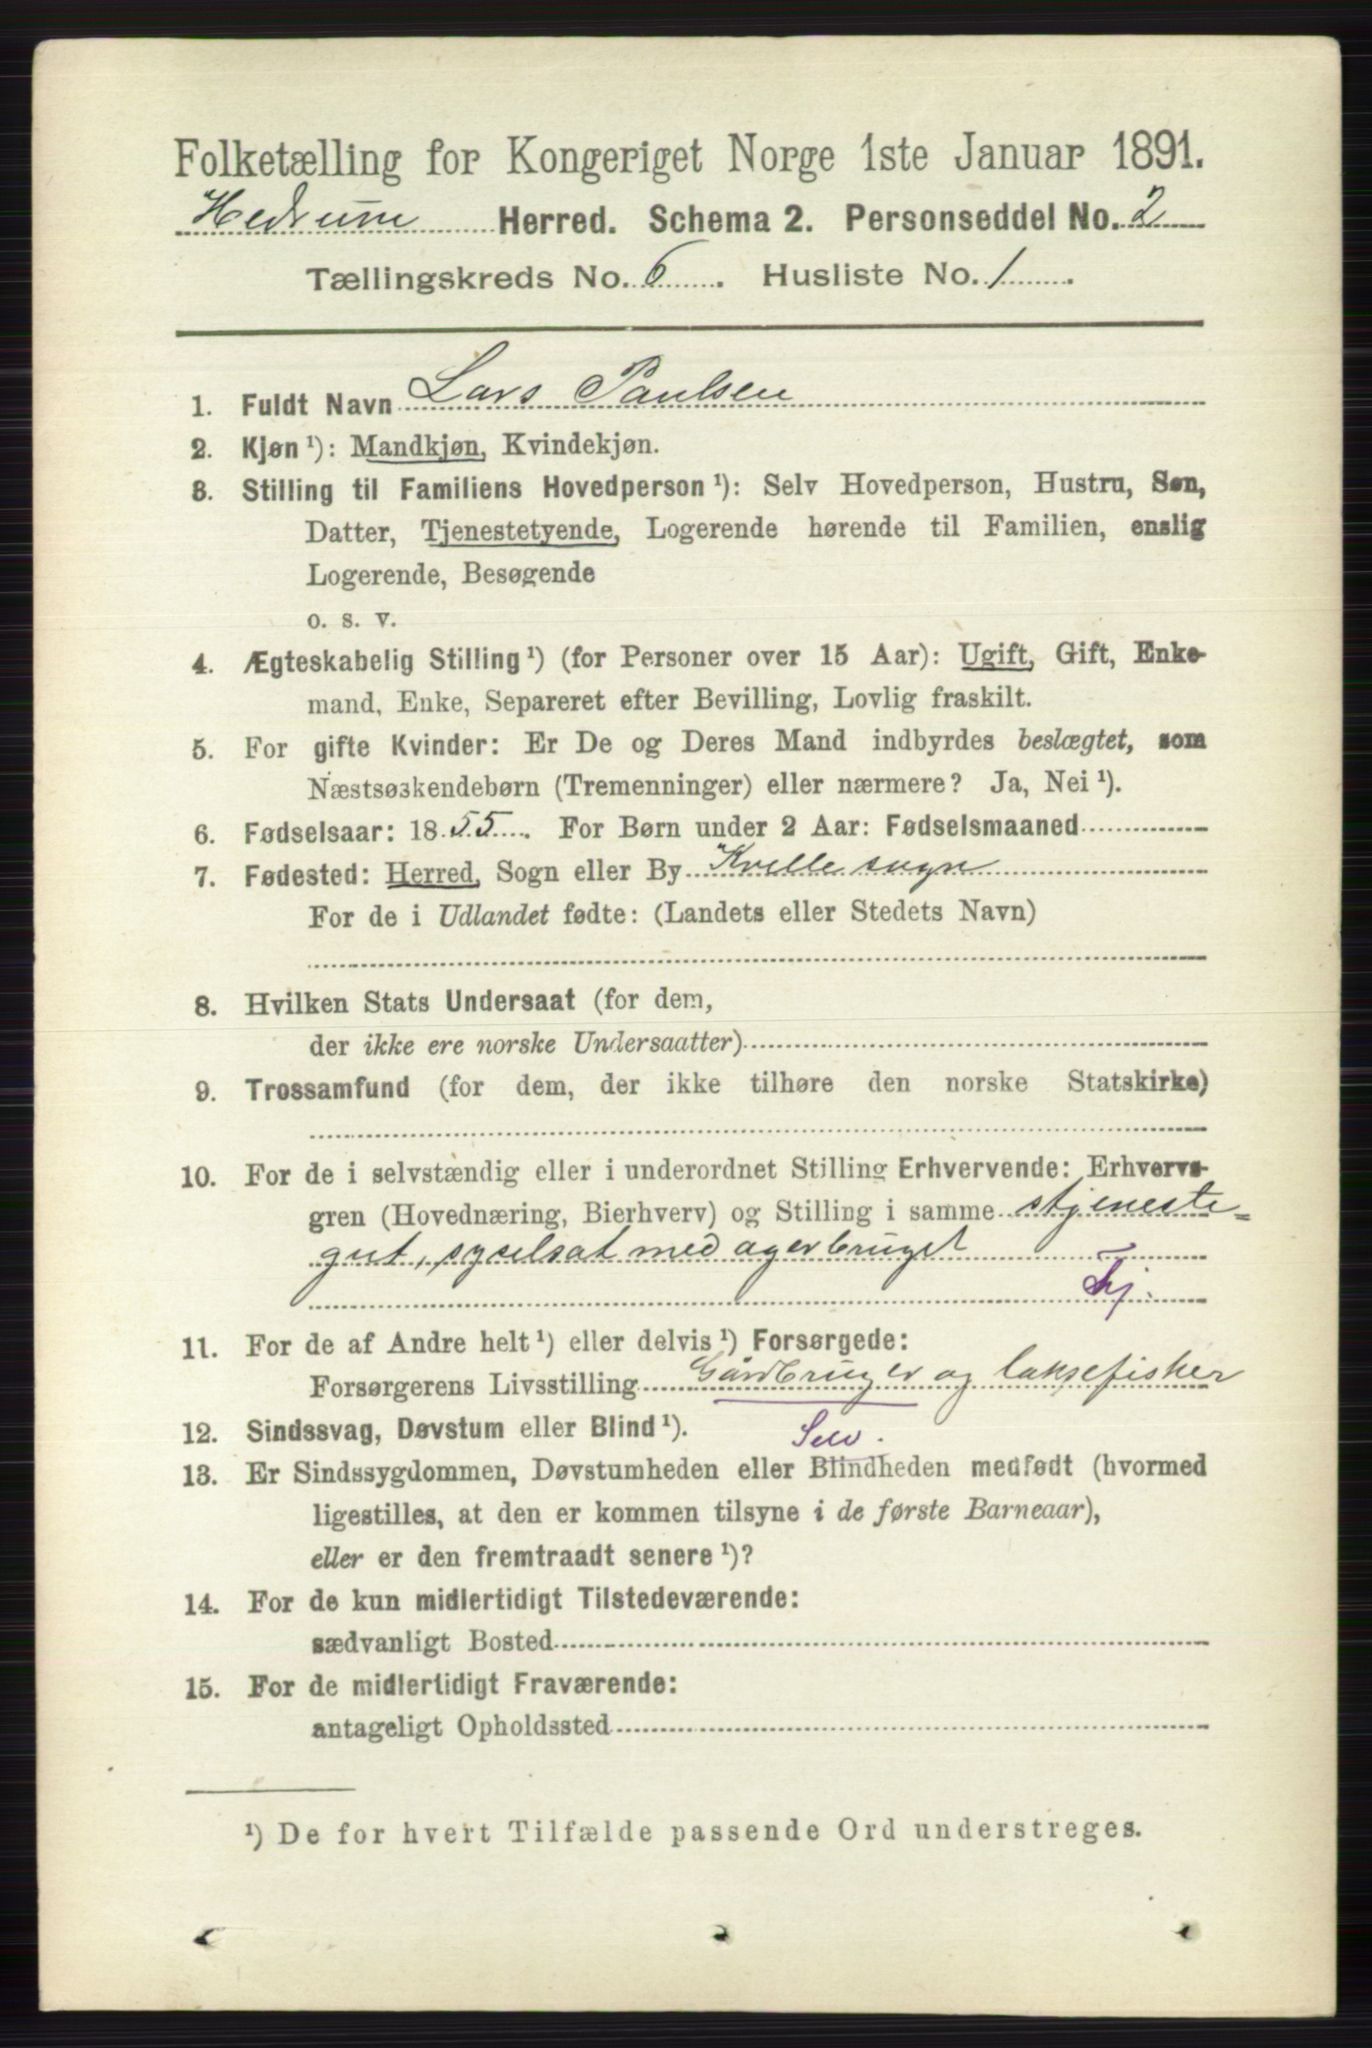 Folketælling for Kongeriget Norge 1ste Januar 1891.
Hedrum Herred. Schema 2. Personseddel No. 2
Tællingskreds No. 6. Husliste No. 1.
1. Fuldt Navn Lars Paulsen
2. Kjøn ¹): Mandkjøn, Kvindekjøn.
3. Stilling til Familiens Hovedperson ¹): Selv Hovedperson, Hustru, Søn,
Datter, Tjenestetyende, Logerende hørende til Familien, enslig
Logerende, Besøgende
o. s. v.
4. Ægteskabelig Stilling ¹) (for Personer over 15 Aar): Ugift, Gift, Enke-
mand, Enke, Separeret efter Bevilling, Lovlig fraskilt.
5. For gifte Kvinder: Er De og Deres Mand indbyrdes beslægtet, som
Næstsøskendebørn (Tremenninger) eller nærmere? Ja, Nei ¹).
6. Fødselsaar: 1855. For Børn under 2 Aar: Fødselsmaaned
7. Fødested: Herred, Sogn eller By Kvelle sogn
For de i Udlandet fødte: (Landets eller Stedets Navn)
8. Hvilken Stats Undersaat (for dem,
der ikke ere norske Undersaatter)
9. Trossamfund (for dem, der ikke tilhøre den norske Statskirke)
10. For de i selvstændig eller i underordnet Stilling Erhvervende: Erhvervs-
gren (Hovednæring, Bierhverv) og Stilling i samme stjeneste-
gut, syselsat med agerbruget
Tj.
11. For de af Andre helt ¹) eller delvis ¹) Forsørgede:
Forsørgerens Livsstilling Gårdbruger og laksefisker
12. Sindssvag, Døvstum eller Blind ¹). Selv.
13. Er Sindssygdommen, Døvstumheden eller Blindheden medfødt (hvormed
ligestilles, at den er kommen tilsyne i de første Barneaar),
eller er den fremtraadt senere ¹)?
14. For de kun midlertidigt Tilstedeværende:
sædvanligt Bosted
15. For de midlertidigt Fraværende:
antageligt Opholdssted
¹) De for hvert Tilfælde passende Ord understreges.